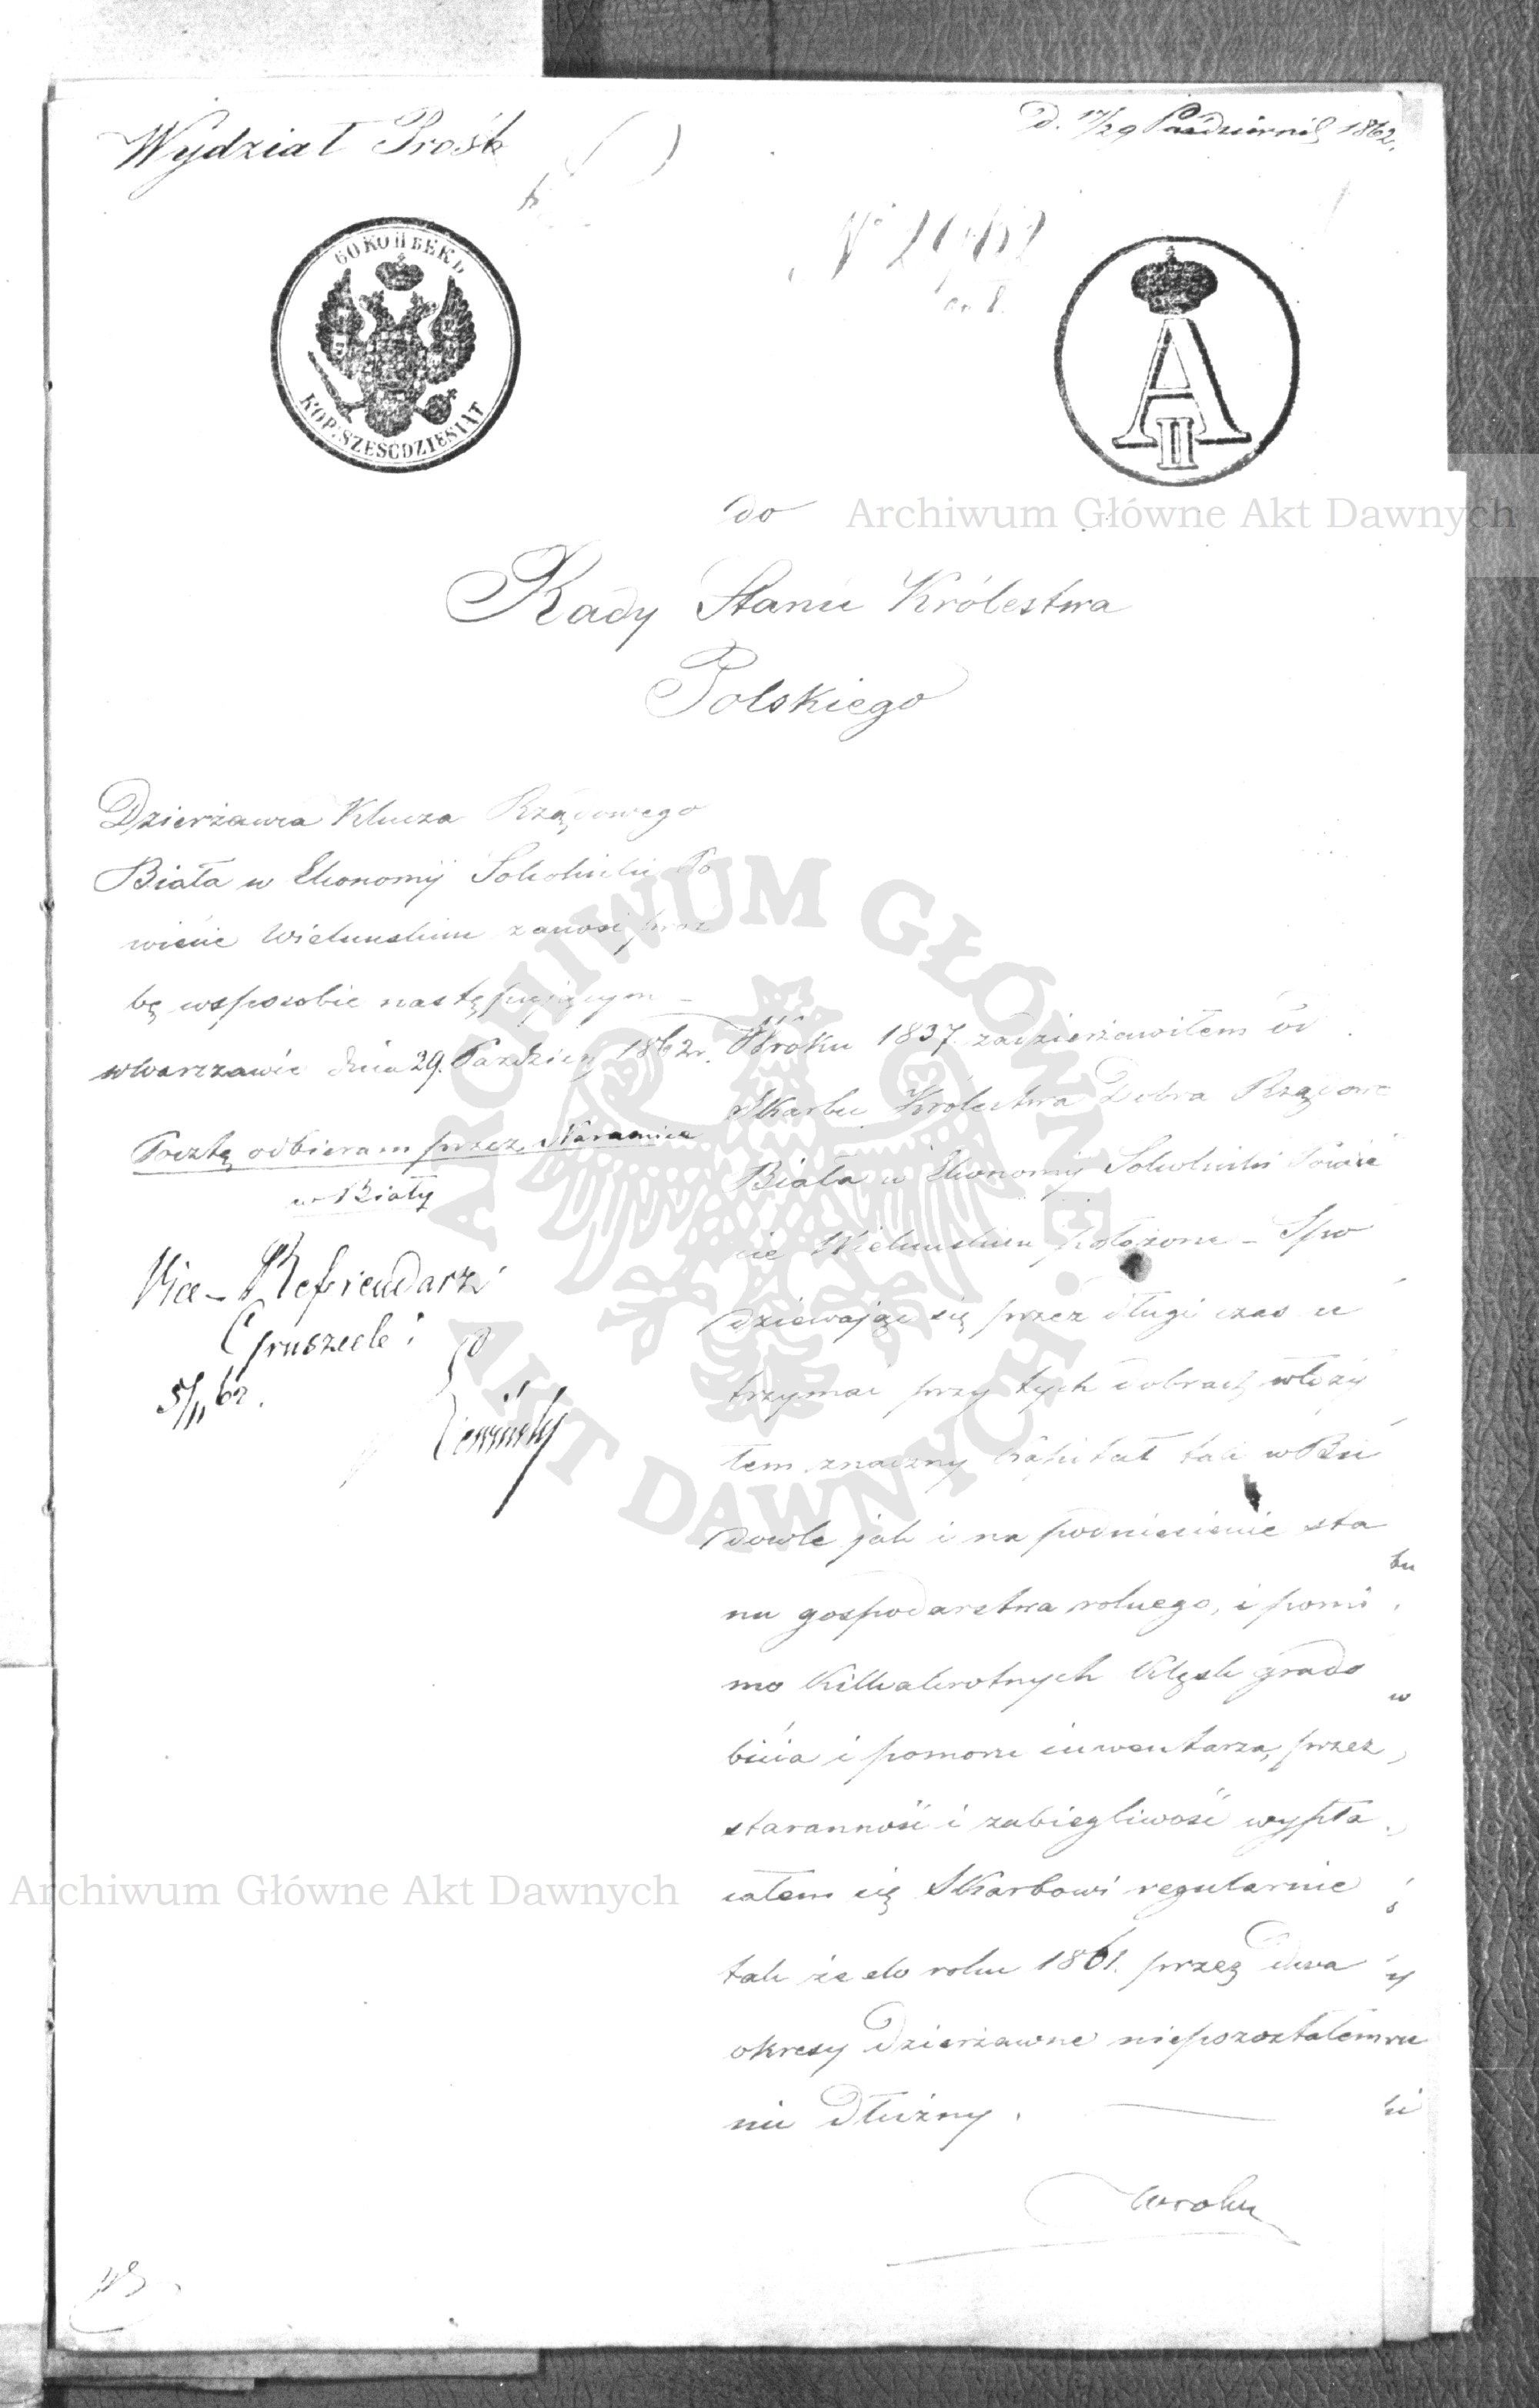 Wydział Prośb
D. 17/29 Październik 1862.
60 КОПѢЕКЪ
KOP. SZEŚĆDZIESIĄT
A II
do
Archiwum Główne Akt Dawnych
Rady Stanu Królestwa
Polskiego
Dzierżawca Klucza Rządowego
Biała w Ekonomij Sokolniki Po
wiecie Wieluńskim zanosi proź
bę wsposobie następującym –
wWarszawie dnia 29. Paździer 1862r.
Pocztę odbieram przez Naramice
w Biały
Vice-Referendarz
Gruszecki
5/11 62.
ARCHIWUM GŁÓWNE AKT DAWNYCH
Wroku 1837. zadzierżawiłem od
Skarbu Królestwa Dobra Rządowe
Biała w Ekonomij Sokolniki Powie
cie Wieluńskim położone – Spo
dziewając się przez długi czas u
trzymać przy tych dobrach włoży
łem znaczny Kapitał tak w Bu
dowle jak i na podniesienie sta
nu gospodarstwa rolnego, i pomi
mo Kilkakrotnych Klęsk grado
bicia i pomoru inwentarza, przez
staranność i zabiegliwość wypła
całem się Skarbowi regularnie
tak że do roku 1861. przez dwa
okresy dzierżawne niepozostałem
nic dłużny.
Archiwum Główne Akt Dawnych
Wroku